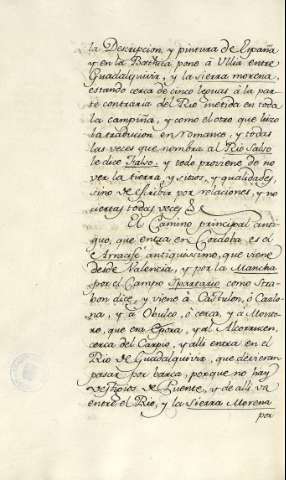 la Descripcion, y pintura de España
y en la Baetica pone à Vllia entre
Guadalquivir, y la sierra morena,
estando cerca de cinco leguas à la par-
te contraria del Rio metida en toda
la campiña, y como el otro que hizo
la traducion en romance, y todas
las veces que nombra al Rio Salso
le dice Falso, y todo proviene de no
ver la tierra, y sitios, y qualidades
sino de escribir por relaciones, y no
ciertas todas veces
El Camino principal anti-
guo, que entra en Cordoba es el
Arracife antiquissimo, que viene
desde Valencia, y por la Mancha
por el Campo Spartario como Stra-
bon dice, y viene à Castulon, ò Cazlo-
na, y à Obulco, ò cerca, y à Monto-
ro, que era Epora, y al Alcorrucen,
cerca del Carpio, y alli entra en el
Rio de Guadalquivir, que devieran
pasar por barca, porque no hay
vestigios de Puente, y de alli va
entre el Rio, y la Sierra Morena
por